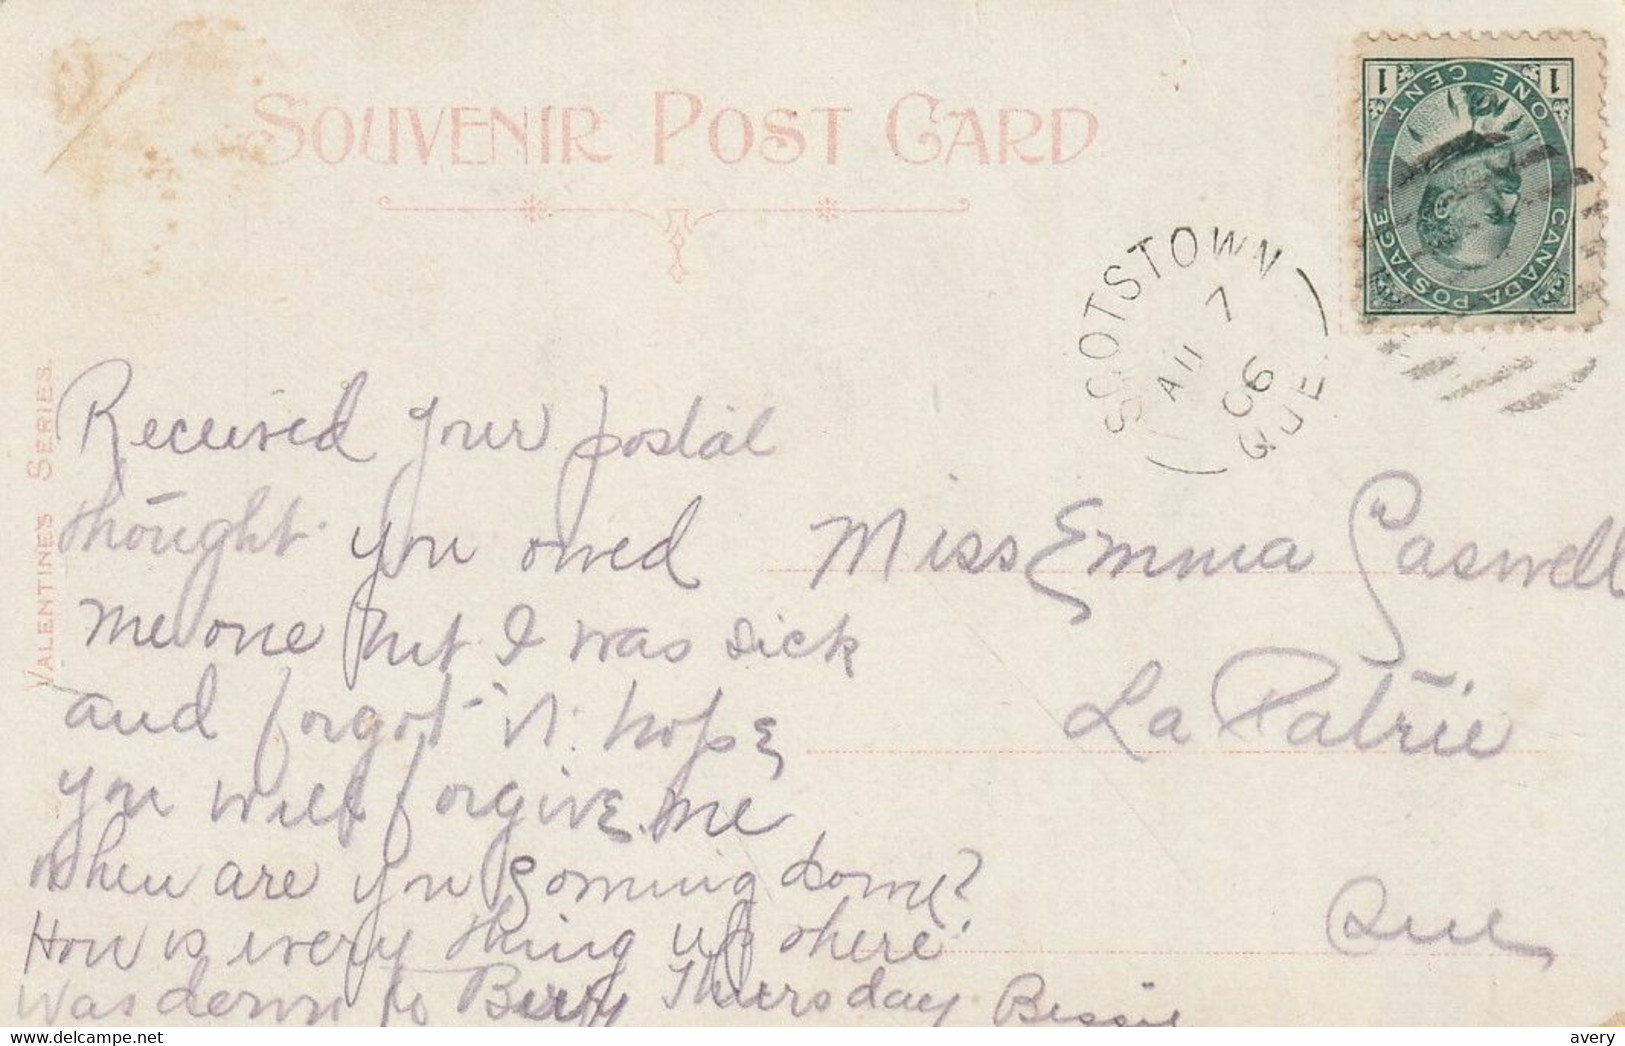 SOUVENIR POST CARD
1 1
ONE CENT
CANADA POSTAGE
SCOTSTOWN
AU 7
06
QUE.
VALENTINE'S SERIES.
Received your postal
thought you owed
me one but I was sick
and forgot it. hope
you will forgive me
when are you coming down?
How is every thing up there
was down to Bury Thursday Bessie
Miss Emma Caswell
La Patrie
Que
www.delcampe.net
avery